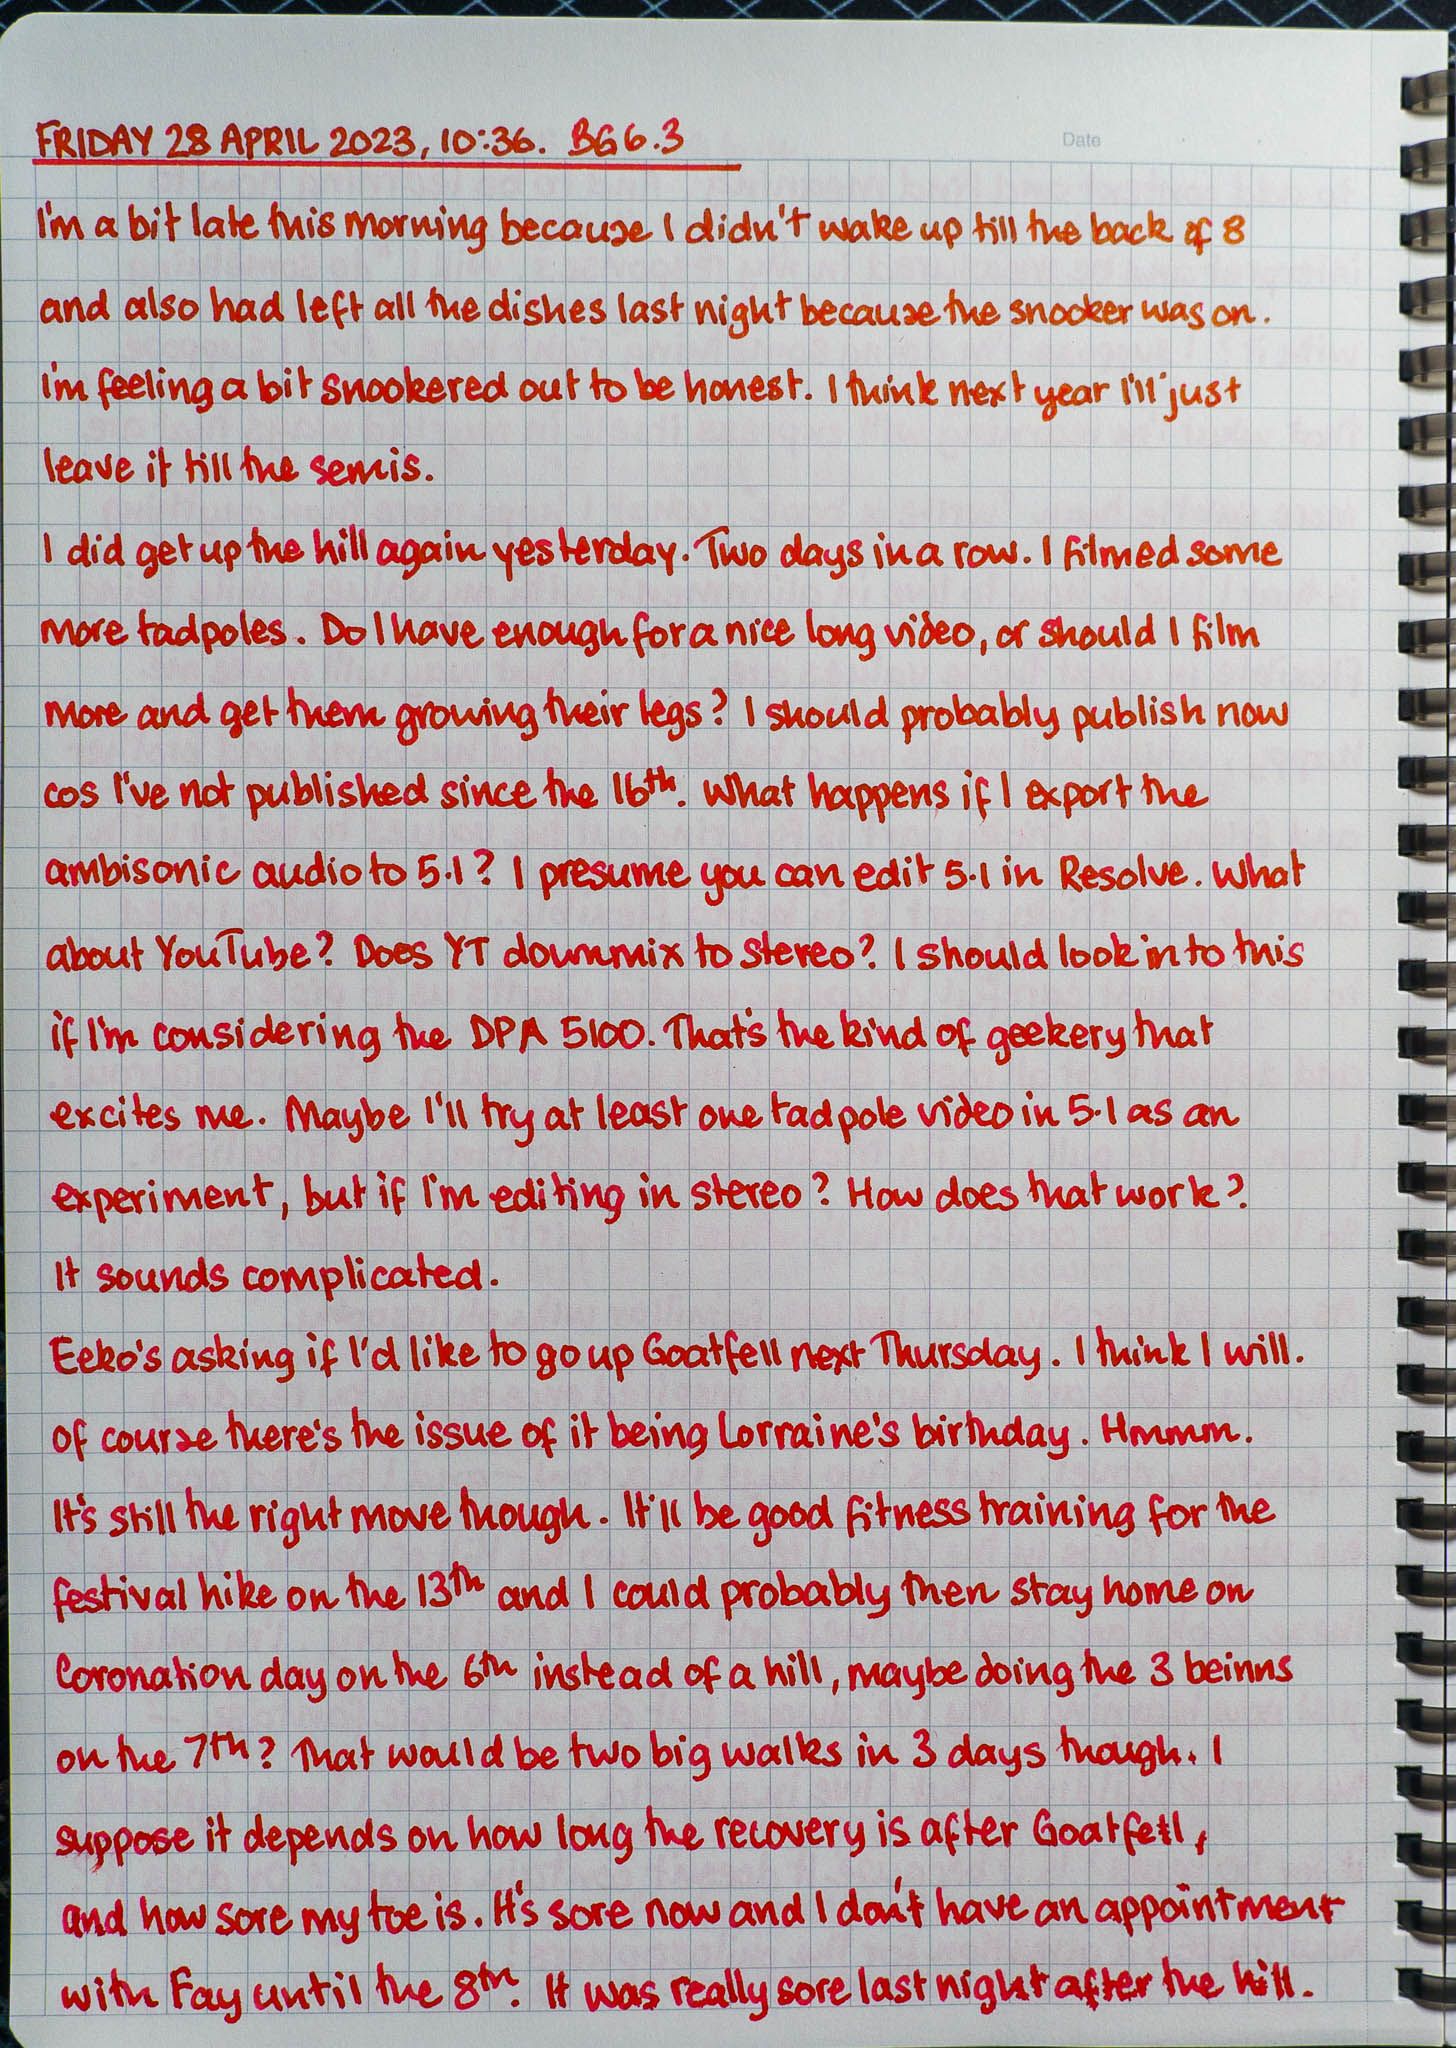 FRIDAY 28 APRIL 2023, 10:36. BG 6.3
Date
I'm a bit late this morning because I didn't wake up till the back of 8
and also had left all the dishes last night because the snooker was on.
I'm feeling a bit snookered out to be honest. I think next year I'll just
leave it till the semis.
I did get up the hill again yesterday. Two days in a row. I filmed some
more tadpoles. Do I have enough for a nice long video, or should I film
more and get them growing their legs? I should probably publish now
cos I've not published since the 16th. What happens if I export the
ambisonic audio to 5.1? I presume you can edit 5.1 in Resolve. What
about YouTube? Does YT downmix to stereo? I should look into this
if I'm considering the DPA 5100. That's the kind of geekery that
excites me. Maybe I'll try at least one tadpole video in 5.1 as an
experiment, but if I'm editing in stereo? How does that work?
It sounds complicated.
Eeko's asking if I'd like to go up Goatfell next Thursday. I think I will.
Of course there's the issue of it being Lorraine's birthday. Hmmm.
It's still the right move though. It'll be good fitness training for the
festival hike on the 13th and I could probably then stay home on
Coronation day on the 6th instead of a hill, maybe doing the 3 beinns
on the 7th? That would be two big walks in 3 days though. I
suppose it depends on how long the recovery is after Goatfell,
and how sore my toe is. It's sore now and I don't have an appointment
with Fay until the 8th. It was really sore last night after the hill.